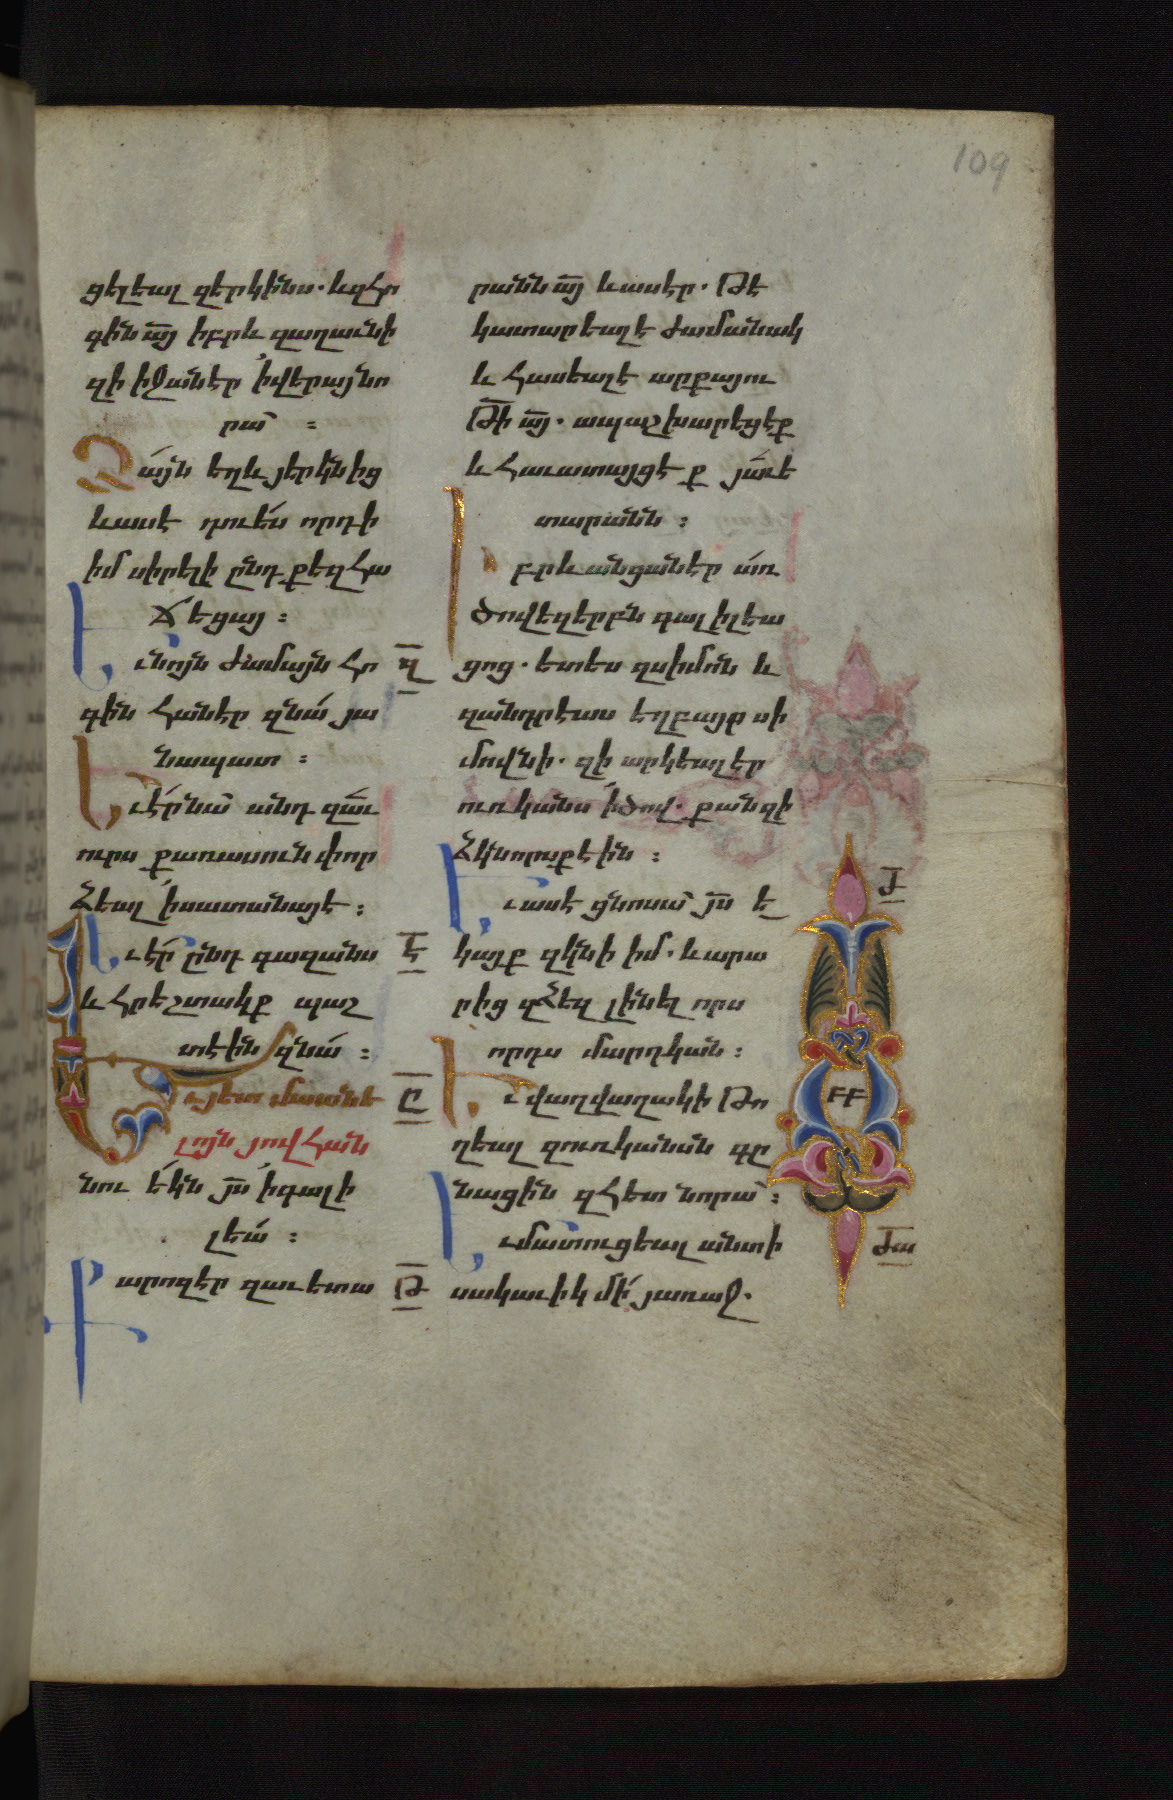 109
ցելեալ զերկինս. և զՀո
գին ա՟յ իբրև զաղաւնի
զի իջանէր ՛ի վերայ նո
րա :
Ձայն եղև յերկնից
և ասէ դու ես որդի
իմ սիրելի ընդ քեզ Հա
ճեցայ :
Եւ նոյն ժամայն Հո
գին Հանէր զնա յա
նապատ :
Եւ էր նա անդ զաւ
ուրս քառասուն փոր
ձեալ ՛ի սատանայէ :
Եւ էր ընդ գազանս
և Հրեշտակք պաշ
տէին զնա :
Եւ յետ մատնե
լոյն յովՀան
նու եկն յ՟ս ՛ի գալի
լեա :
Քարոզէր զաւետա
զ
է
ը
թ
րանն ա՟յ և ասէր. Թէ
կատարեալ է ժամանակ
և Հասեալ է արքայու
Թի ա՟յ. ապաշխարեցէք
և Հաւատացէք յաւե
տարանն :
Իբրև անցանէր առ
ծովեզերբն գալիլեա
ցոց. ետես զսիմոն և
զանդրէաս եղբայր սի
մովնի. զի արկեալ էր
ուռկանս ՛ի ծով. քանզի
ձկնորսք էին :
Եւ ասէ ցնոսա յ՟ս ե
կայք զկնի իմ. և արա
րից զձեզ լինել որս
որդս մարդկան :
Եւ վաղվաղակի Թո
ղեալ զուռկանսն գը
նացին զՀետ նորա :
Եւ մատուցեալ անտի
սակաւիկ մի յառաջ.
Ժ
ժա